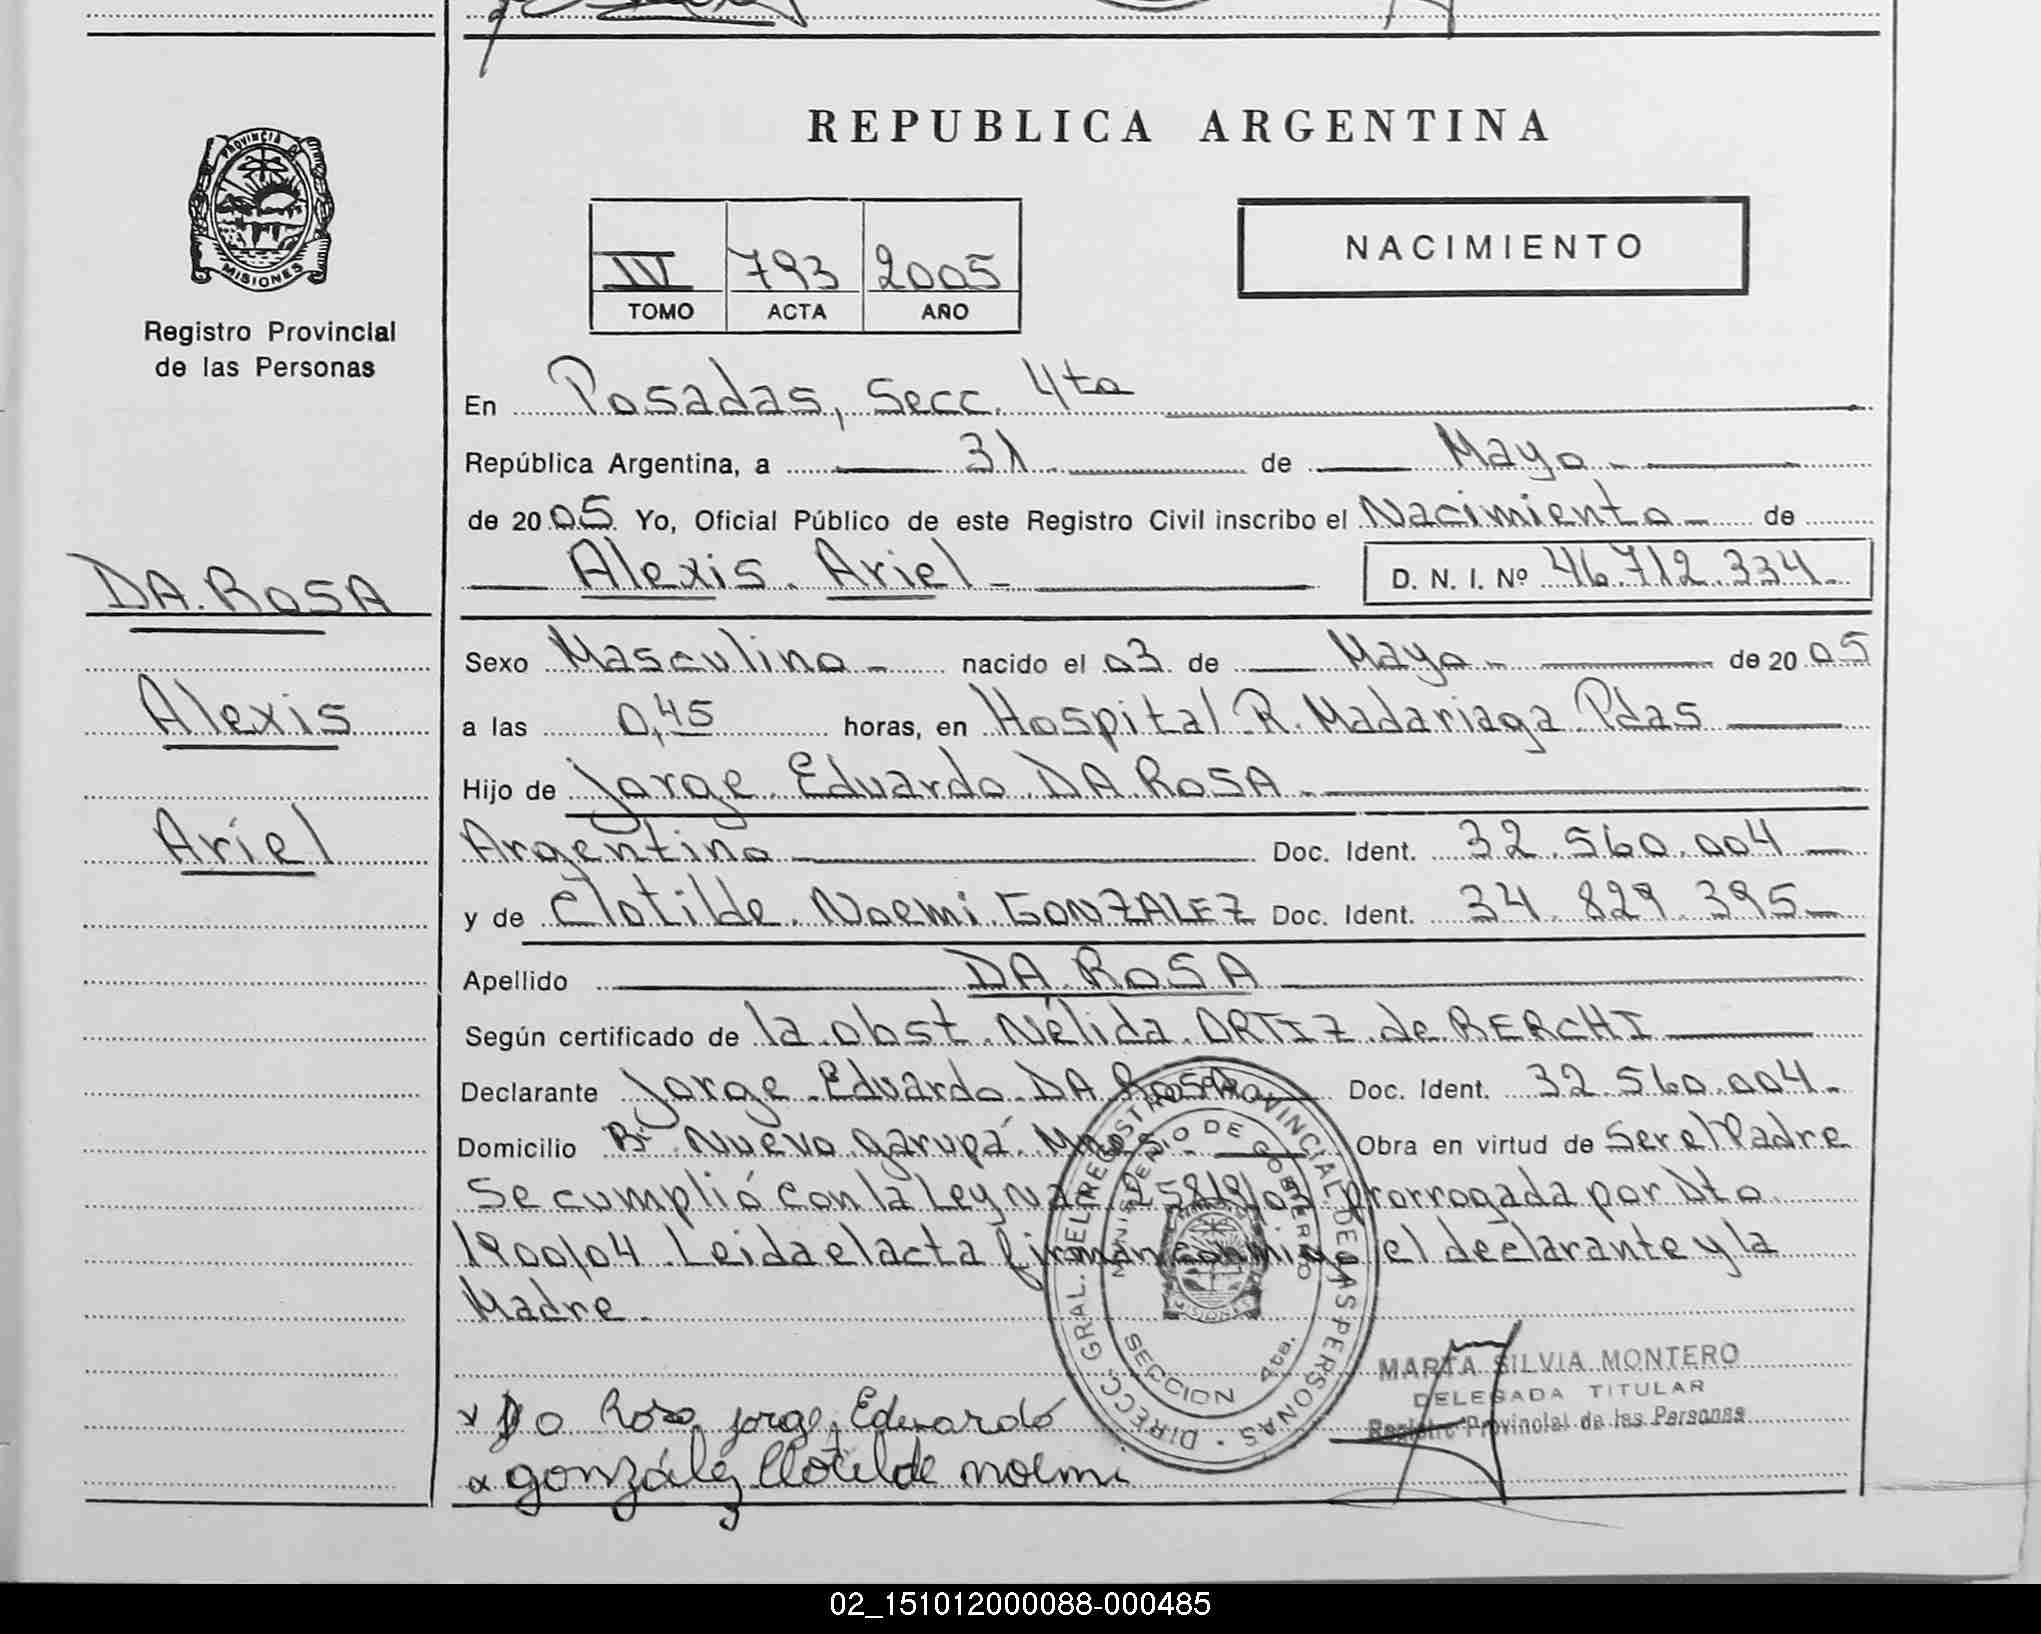 REPUBLICA ARGENTINA
PROVINCIA DE
MISIONES
Registro Provincial
de las Personas
IV 793 2005
TOMO ACTA AÑO
NACIMIENTO
En Posadas, Secc. 4ta
República Argentina, a 31 de Mayo
de 2005 Yo, Oficial Público de este Registro Civil inscribo el Nacimiento de
Alexis Ariel D. N. I. Nº 46.712.334
DA ROSA
Alexis
Ariel
Sexo Masculino nacido el 03 de Mayo de 2005
a las 0,45 horas, en Hospital R. Madariaga Pdas
Hijo de Jorge Eduardo DA ROSA
Argentino Doc. Ident. 32.560.004
y de Clotilde Noemi GONZALEZ Doc. Ident. 34.829.395
Apellido DA ROSA
Según certificado de la obst. Nélida ORTIZ de BERCHI
Declarante Jorge Eduardo DA ROSA Doc. Ident. 32.560.004
Domicilio Bº Nuevo garupá. Mnes. Obra en virtud de Ser el Padre
Se cumplió con la Ley Nac. 25819/03 prorrogada por Dto
1900/04. Leida el acta firman conmigo el declarante y la
Madre.
DIRECC. GRAL. DEL REGISTRO PROVINCIAL DE LAS PERSONAS
MINISTERIO DE GOBIERNO
MISIONES
SECCION 4ta.
MARTA SILVIA MONTERO
DELEGADA TITULAR
Registro Provincial de las Personas
x Da Rosa jorge Eduardo
x gonzález Clotilde noemi
02_151012000088-000485